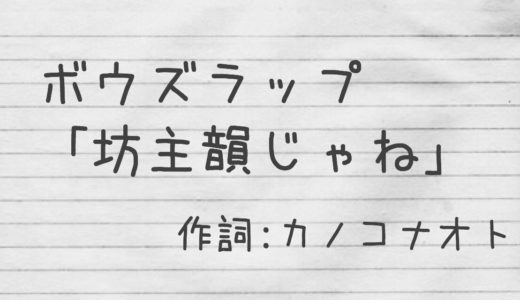 ボウズラップ
「坊主韻じゃね」
作詞:カノコナオト